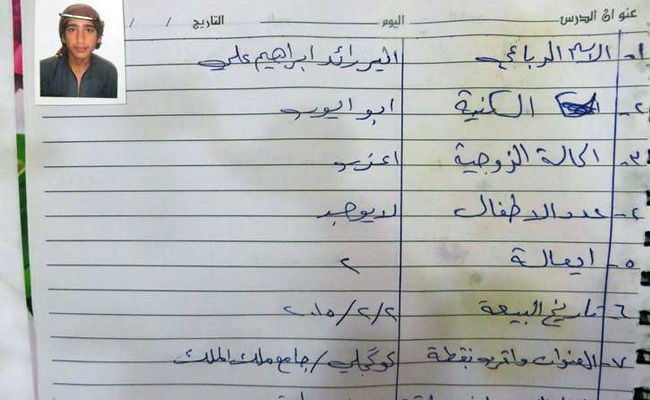 عنوان الدرس اليوم التاريخ / /
١- الاسم الرباعي رائد ابراهيم علي
٢- الكنية ابو ايوب
٣- الحالة الزوجية اعزب
٤- عدد الاطفال لا يوجد
٥- ٢
٦- تاريخ البيعة ٢٠١٥/٢/٢
٧- العنوان واقرب نقطة كوكجلي/جامع ملك الملك